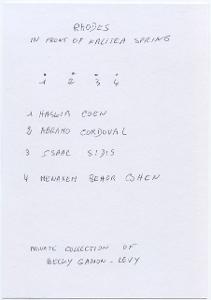 RHODES
IN FRONT OF KALITEA SPRING
1 2 3 4
1 HASLIA COEN
2 ABRAMO CORDOVAL
3 ISAAC SIDIS
4 MENAHEM BEHOR COHEN
PRIVATE COLLECTION OF
BECKY GADION - LEVY